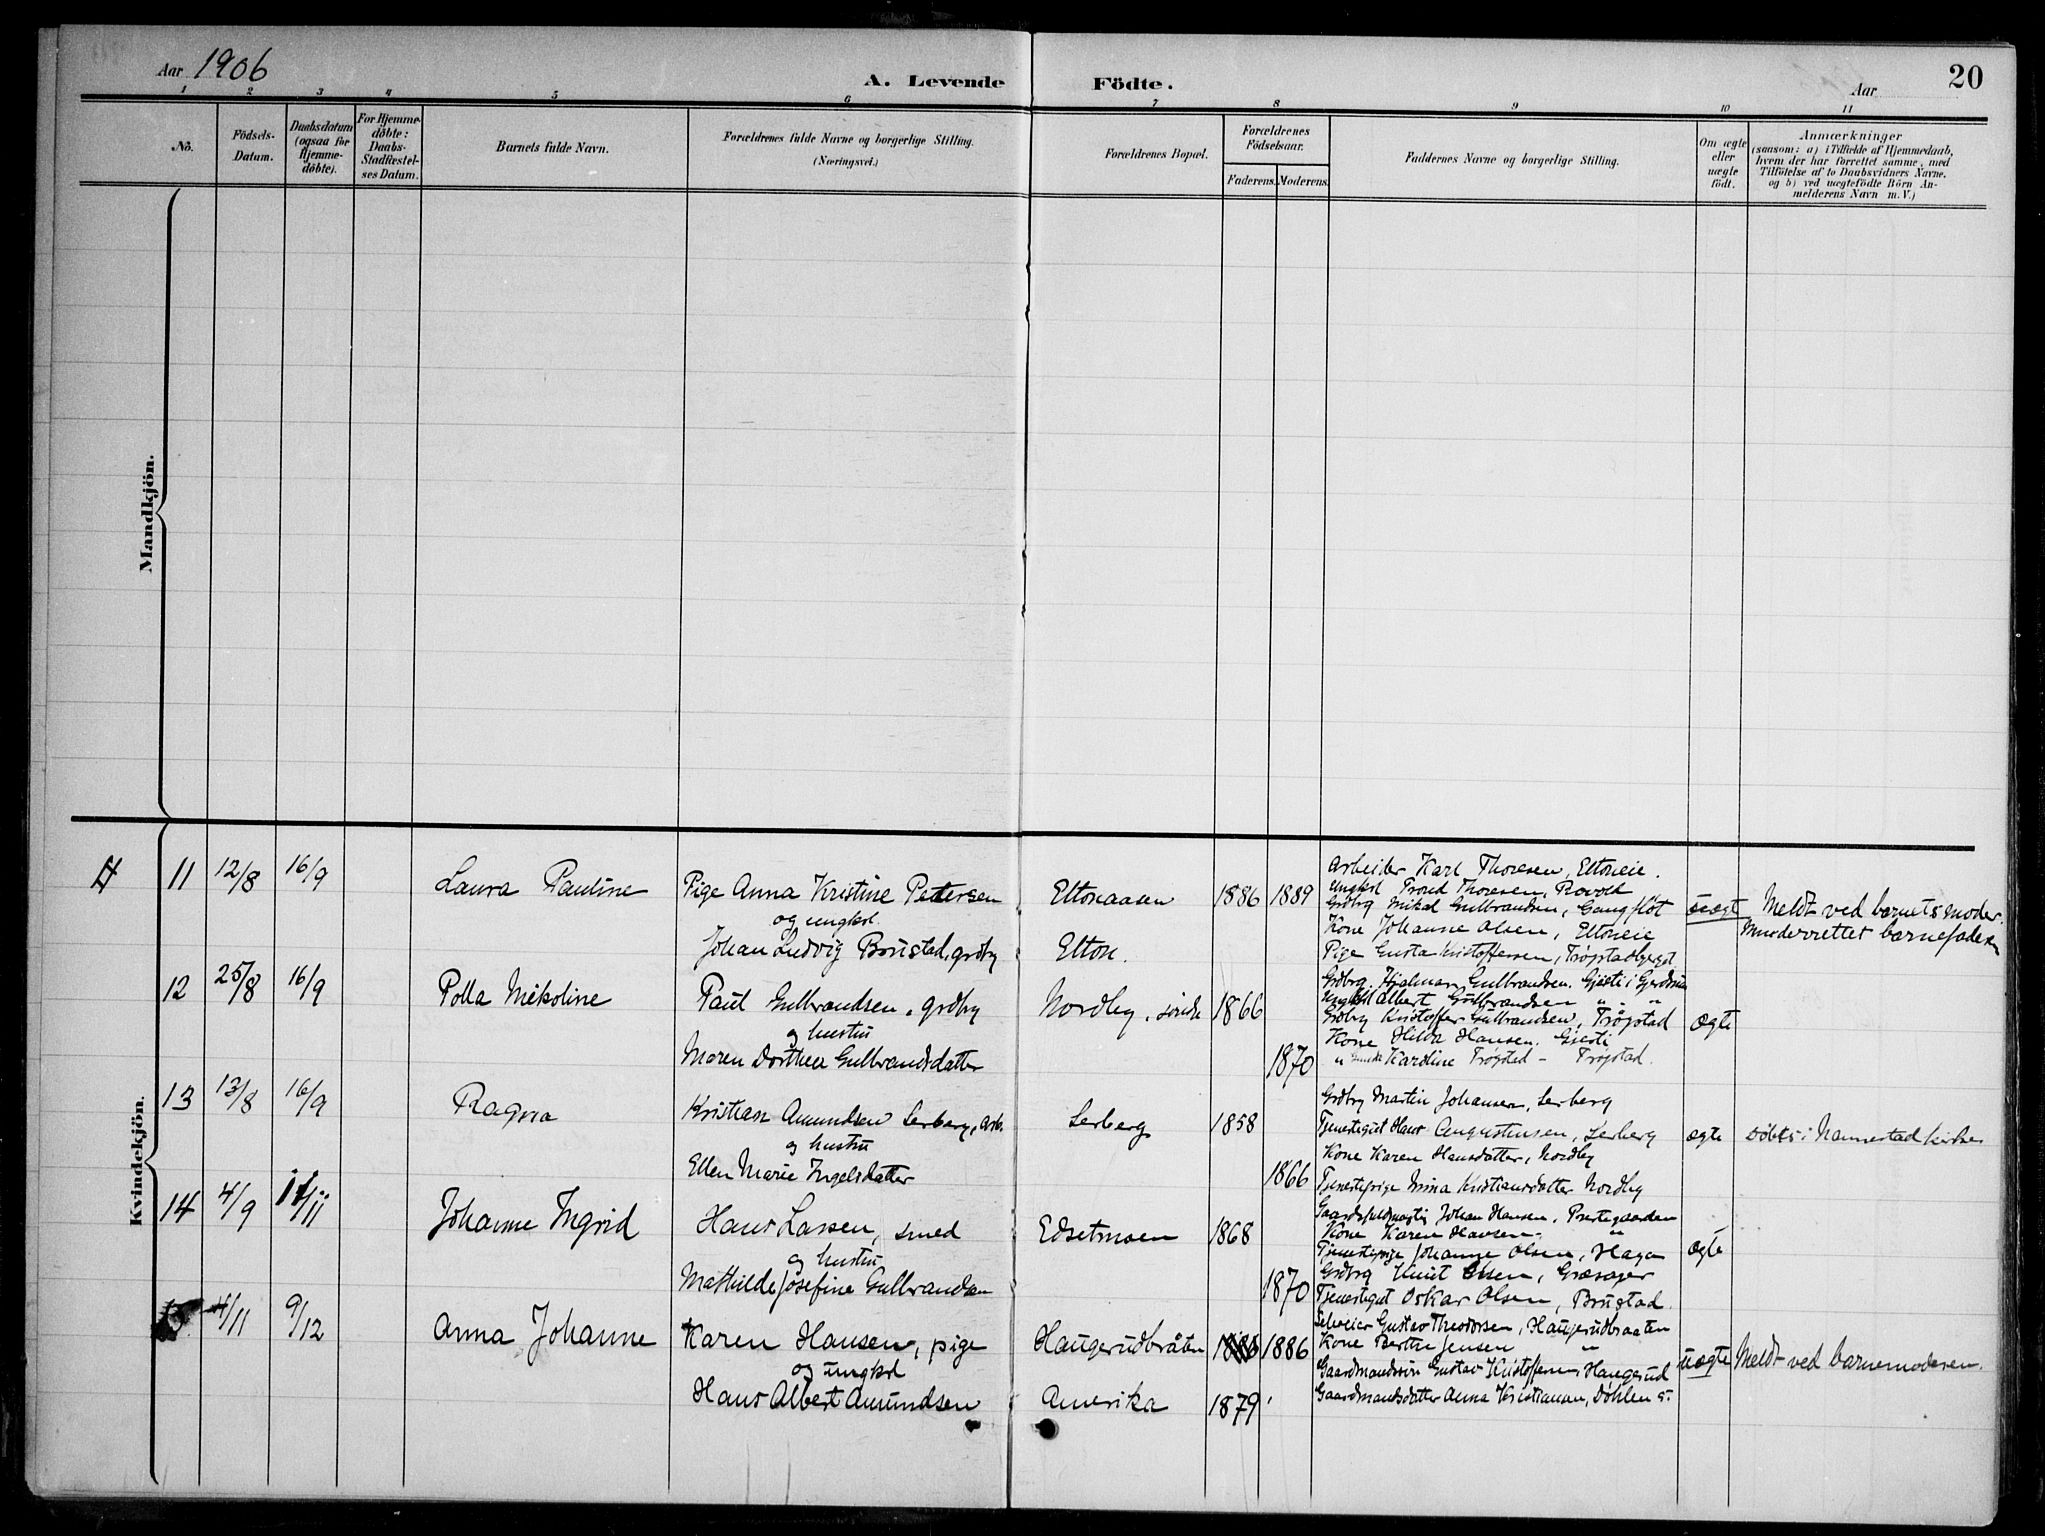 Aar 1906
A. Levende Födte.
Aar
20
1 2 3 4 5 6 7 8 9 10 11
No.
Födsels-Datum.
Daabsdatum (ogsaa for Hjemme-döbte).
For Hjemme-döbte: Daabs-Stadfæstel-ses Datum.
Barnets fulde Navn.
Forældrenes fulde Navne og borgerlige Stilling. (Næringsvei.)
Forældrenes Bopæl.
Forældrenes Födselsaar.
Faderens. Moderens.
Faddernes Navne og borgerlige Stilling.
Om ægte eller uægte født.
Anmærkninger
(saasom: a) i Tilfælde af Hjemmedaab, hvem der har forrettet samme, med Tilföielse af to Daabsvidners Navne. og b) ved uægtefödte Börn An-melderens Navn m.V.)
Mandkjön.
Kvindekjön.
11 12/8 16/9 Laura Pauline
Pige Anna Kristine Petersen
og ungkl.
Johan Ludvig Brustad, grdbr
Eltonaaen
Elton.
1886 1889
Arbeider Karl Thoresen, Eltoneie.
Ungkl Trond Thoresen,
Grdbrg Mikal Gulbrandsen, Gangflöt
Kone Johanne Olsen, Eltoneie
Pige Gusta Kristoffersen, Trøgstadberget
uægt
Meldt ved barnets moder.
barnefaderen
12 25/8 16/9 Polla Nikoline
Paul Gulbrandsen, grdbr
og hustru
Maren Dorthea Gulbrandsdatter
Nordby, söndre
1866
1870
Grdbrg. Hjalmar Gulbrandsen. Gjesti i Gjerdrum
Ungkl Albert Gulbrandsen " "
Grdbr Kristoffer Gulbrandsen, Trøgstad
Kone Hilda Hansen. Gjesti
" Karoline Trøgstad - Trøgstad.
ægte
13 13/8 16/9 Ragna
Kristian Amundsen Lerberg, arb.
og hustru
Ellen Marie Ingelsdatter
Lerberg
1858
1866
Grdbr Martin Johansen, Lerberg
Tjenestegut Hans Augustinsen, Lerberg
Kone Karen Hansdatter, Nordby
Tjenestepige Mina Kristiansdatter Nordby
ægte
Döbt i Nannestad kirke
14 4/9 11/11 Johanne Ingrid
Hans Larsen, smed
og hustru
Mathilde Josefine Gulbrandsen
Edsetmoen
1868
1870
Gaardsfuldmægtig Johan Hansen, Prestegaarden
Kone Karen Hansen. "
Tjenestepige Johanne Olsen, Haga
Grdbrg Knut Olsen, Græsager
Tjenestegut Oskar Olsen, Brustad.
ægte
15. 4/11 9/12 Anna Johanne
Karen Hansen, pige
og ungkl
Hans Albert Amundsen
Haugerudbråten
Amerika
1886 1886
1879
Selveier Gustav Theodorsen, Haugerudbraaten
Kone Berthe Jensen "
Gaardmandssøn Gustav Kristoffersen, Haugerud
Gaardmandsdatter Anna Kristiansen, Döhlen s.
uægte
Meldt ved barnemoderen.